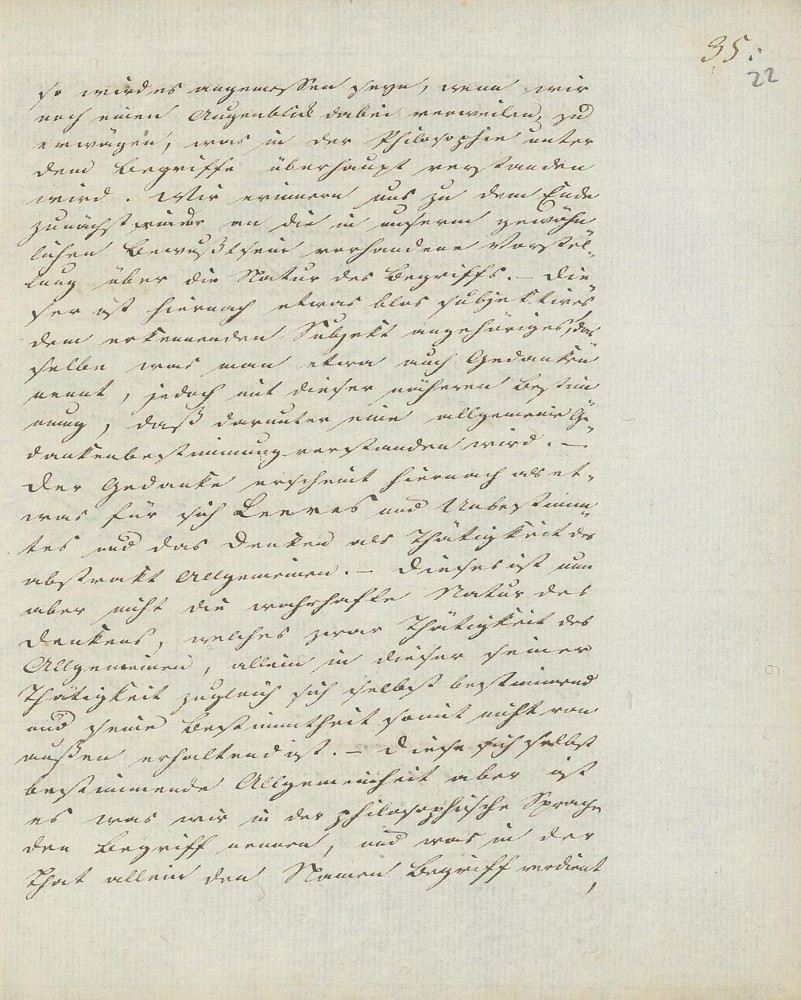 35.
22
so wird es angemessen seyn, wenn wir
noch einen Augenblick dabei verweilen, zu
erwägen, was in der Philosophie unter
dem Begriffe überhaupt verstanden
wird. Wir erinnern uns zu dem Ende
zunächst wieder an die in unserm gewöhn
lichen Bewußtsein vorhandene Vorstel-
lung über die Natur des Begriffs. – Die
ser ist hiernach etwas blos subjektives,
dem erkennenden Subjekt angehöriges, das
selbe was man etwa auch Gedanken
nennt, jedoch mit dieser näheren Bestim
mung, daß darunter eine allgemeine Ge
dankenbestimmung verstanden wird. –
Der Gedanke erscheint hiernach als et-
was für sich Leeres und Unbestimm
tes und das Denken als Thätigkeit des
abstrakt Allgemeinen. – Dieses ist nun
aber nicht die wahrhafte Natur des
Denkens, welches zwar Thätigkeit des
Allgemeinen, allein in dieser seiner
Thätigkeit zugleich sich selbst bestimmend
und seine Bestimmtheit somit nicht von
außen erhaltend ist. – Diese sich selbst
bestimmende Allgemeinheit aber ist
es was wir in der philosophische Sprache
den Begriff nennen, und was in der
That allein den Namen Begriff verdient,